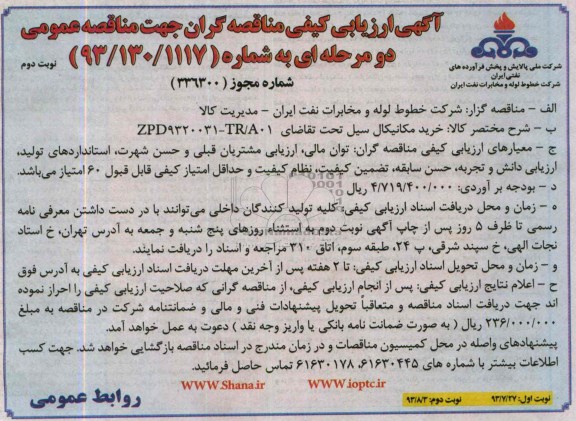 آگهی ارزیابی کیفی مناقصه گران جهت مناقصه عمومی
دو مرحله ای به شماره (۹۳/۱۳۰/۱۱۱۷)
نوبت دوم
شماره مجوز (۳۳۶۳۰۰)
شرکت ملی پالایش و پخش فرآورده های
نفتی ایران
شرکت خطوط لوله و مخابرات نفت ایران
الف - مناقصه گزار: شرکت خطوط لوله و مخابرات نفت ایران - مدیریت کالا
ب - شرح مختصر کالا: خرید مکانیکال سیل تحت تقاضای ZPD۹۳۲۰۰۳۱-TR/A۰۱
ج - معیارهای ارزیابی کیفی مناقصه گران: توان مالی، ارزیابی مشتریان قبلی و حسن شهرت، استانداردهای تولید،
ارزیابی دانش و تجربه، حسن سابقه، تضمین کیفیت، نظام کیفیت و حداقل امتیاز کیفی قابل قبول ۶۰ امتیاز می‌باشد.
د - بودجه بر آوردی: ۴/۷۱۹/۴۰۰/۰۰۰ ریال
ه - زمان و محل دریافت اسناد ارزیابی کیفی: کلیه تولید کنندگان داخلی می‌توانند با در دست داشتن معرفی نامه
رسمی تا ظرف ۵ روز پس از چاپ آگهی نوبت دوم به استثناء روزهای پنج شنبه و جمعه به آدرس تهران، خ استاد
نجات الهی، خ سپند شرقی، پ ۲۴، طبقه سوم، اتاق ۳۱۰ مراجعه و اسناد را دریافت نمایند.
و - زمان و محل تحویل اسناد ارزیابی کیفی: تا ۲ هفته پس از آخرین مهلت دریافت اسناد ارزیابی کیفی به آدرس فوق
ح - اعلام نتایج ارزیابی کیفی: پس از انجام ارزیابی کیفی، از مناقصه گرانی که صلاحیت ارزیابی کیفی را احراز نموده
اند جهت دریافت اسناد مناقصه و متعاقباً تحویل پیشنهادات فنی و مالی و ضمانتنامه شرکت در مناقصه به مبلغ
۲۳۶/۰۰۰/۰۰۰ ریال ( به صورت ضمانت نامه بانکی یا واریز وجه نقد ) دعوت به عمل خواهد آمد.
پیشنهادهای واصله در محل کمیسیون مناقصات و در زمان مندرج در اسناد مناقصه بازگشایی خواهد شد. جهت کسب
اطلاعات بیشتر با شماره های ۶۱۶۳۰۴۴۵، ۶۱۶۳۰۱۷۸ تماس حاصل فرمائید.
WWW.Shana.ir WWW.ioptc.ir
نوبت اول: ۹۳/۷/۲۷ نوبت دوم: ۹۳/۸/۳
روابط عمومی